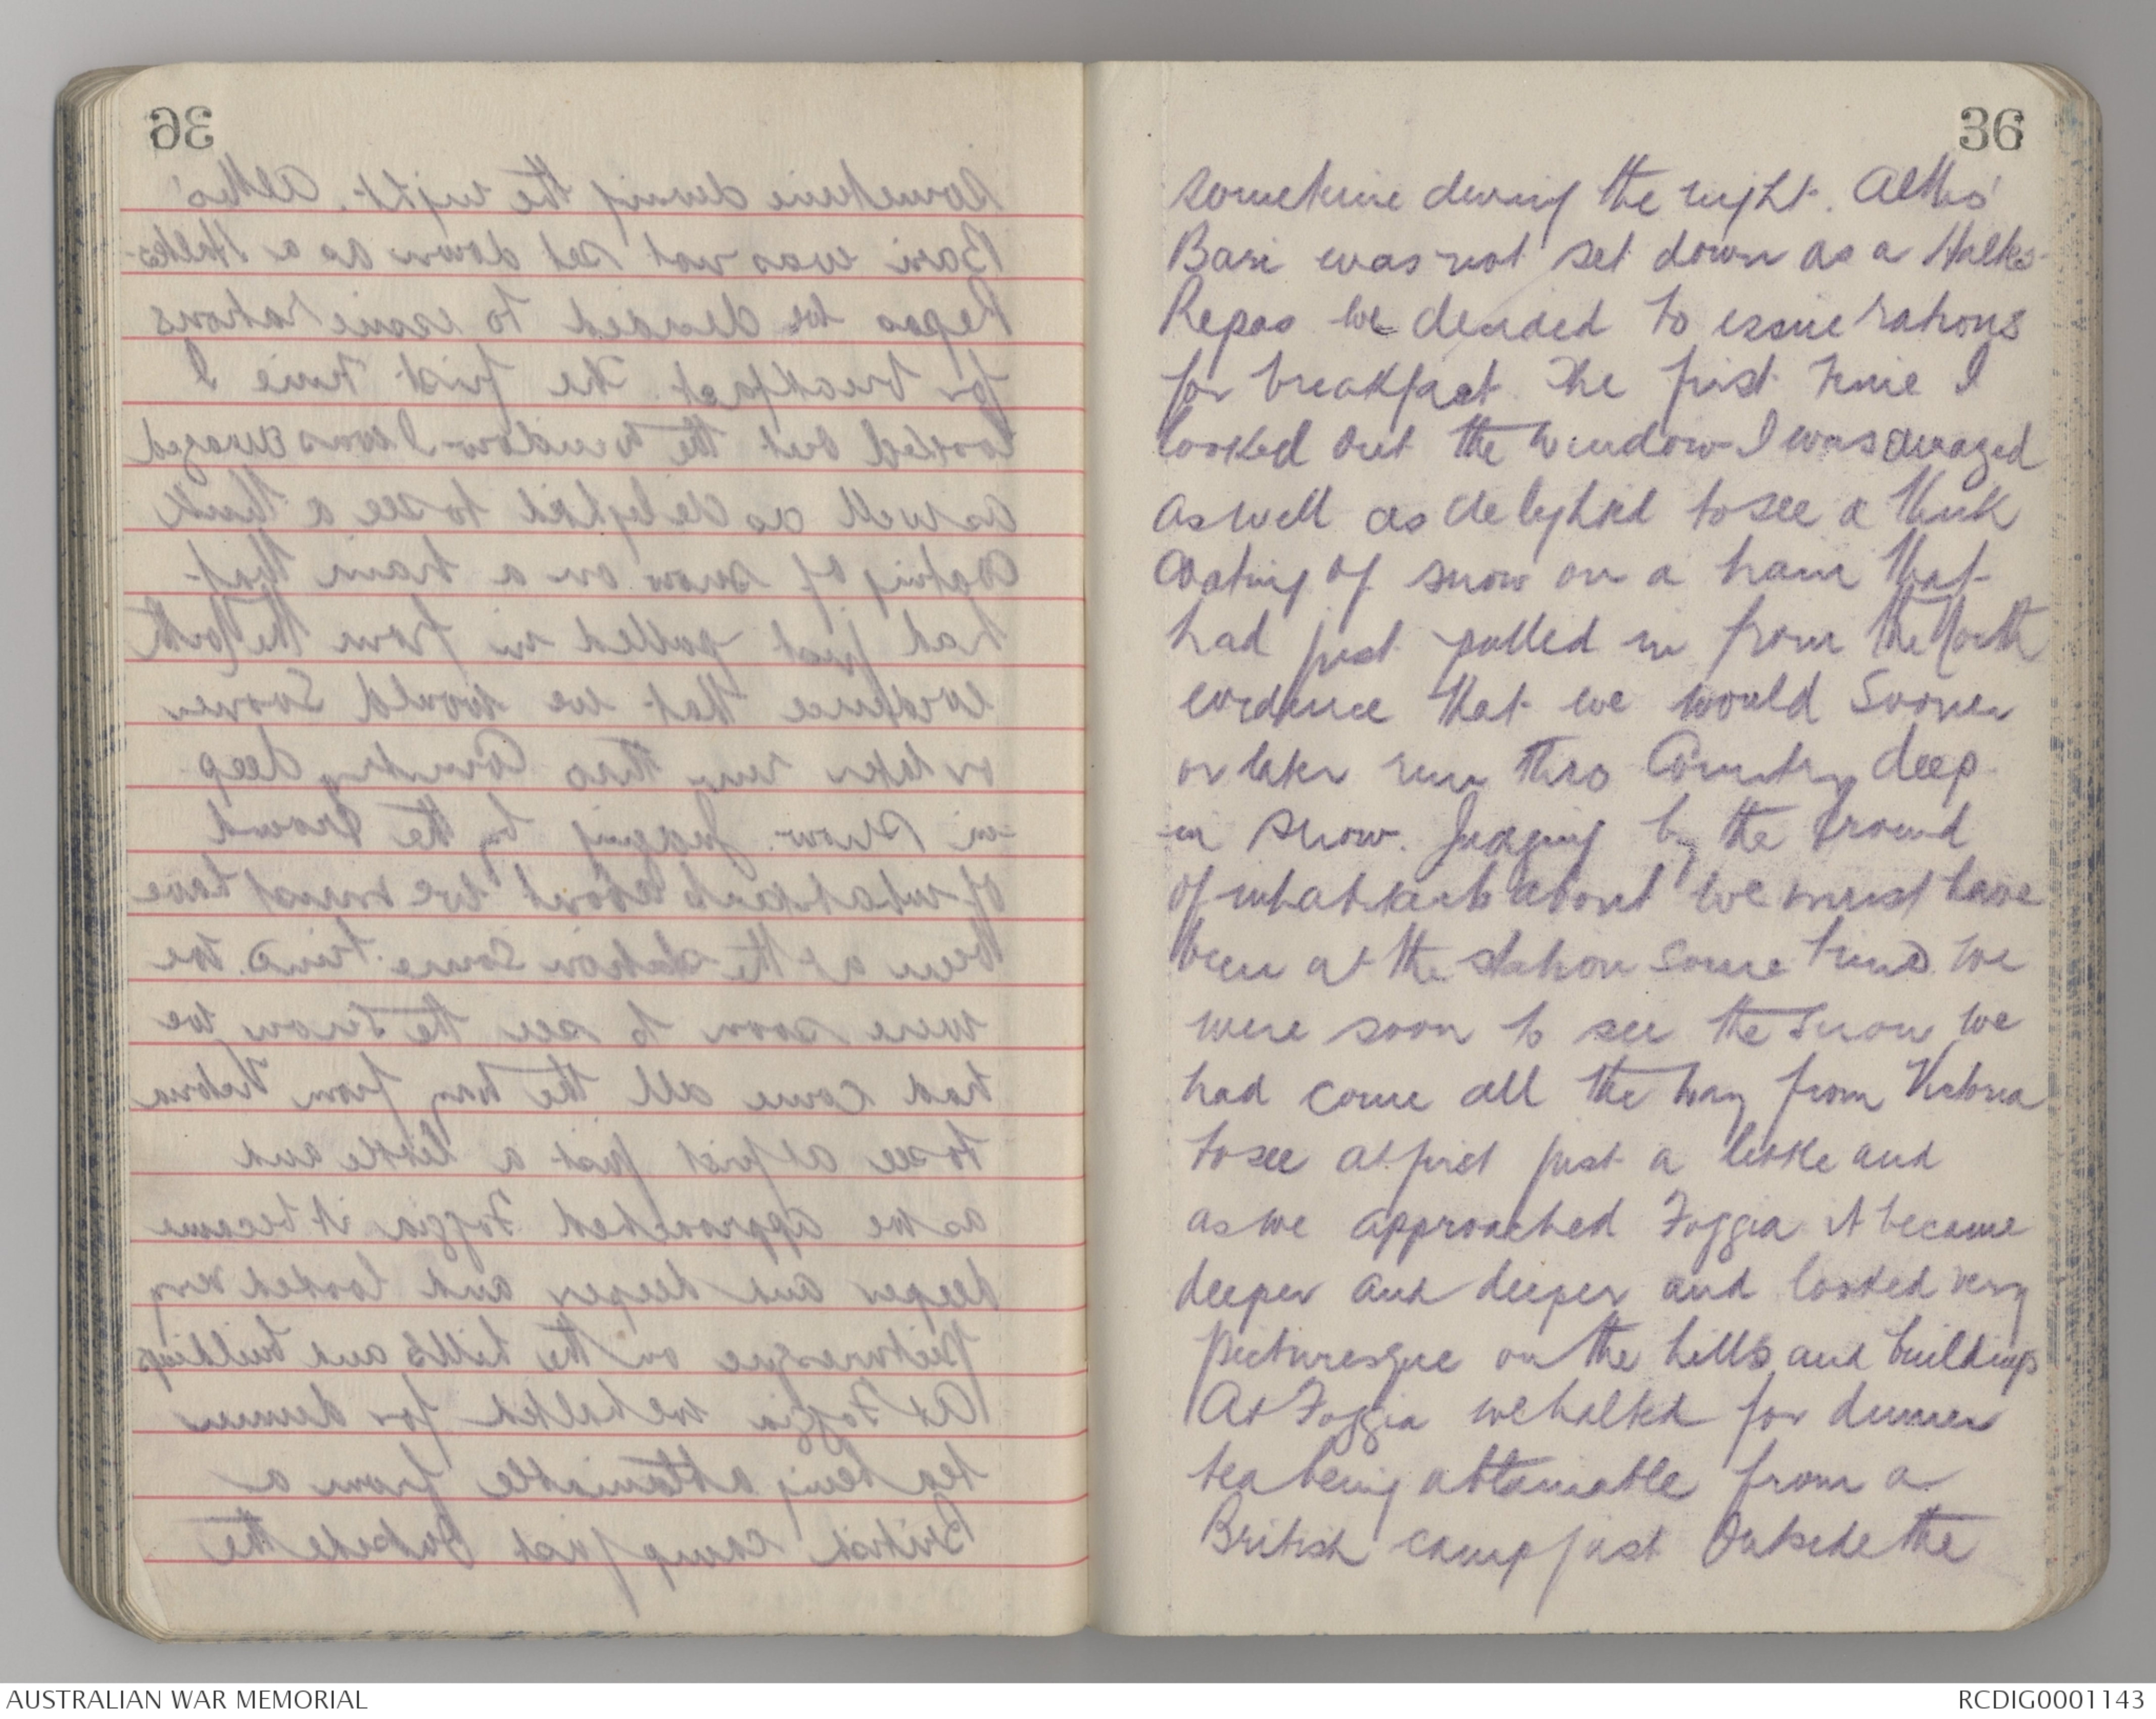 36
sometime during the night. Altho'
Bari was not set down as a Halte-
Repas we decided to issue rations
for breakfast. The first time I
looked out the window I was amazed
as well as delighted to see a thick
coating of snow on a train that
had just pulled in from the North
evidence that we would sooner
or later run thro Country deep
in snow. Judging by the crowd
of inhabitants about we must have
been at the station some time. We
were soon to see the snow we
had come all the way from Victoria
to see at first just a little and
as we approached Foggia it became
deeper and deeper and looked very
picturesque on the hills and buildings
At Foggia we halted for dinner
tea being attainable from a
British camp just outside the
AUSTRALIAN WAR MEMORIAL
RCDIG0001143